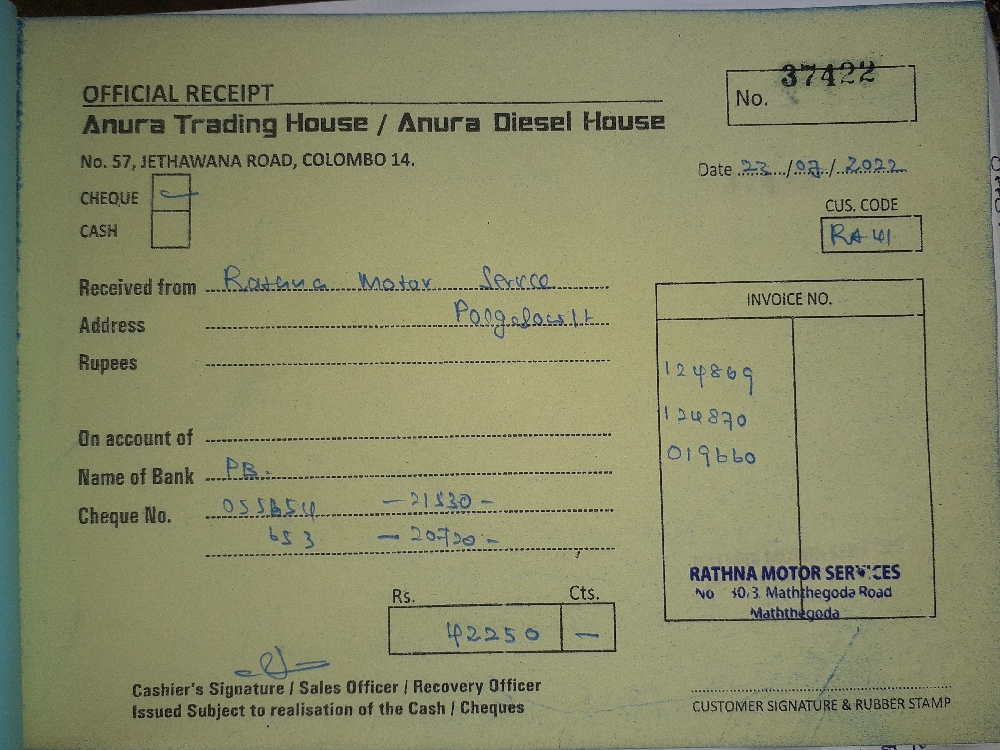 OFFICIAL RECEIPT
No. 37422
Anura Trading House / Anura Diesel House
No. 57, JETHAWANA ROAD, COLOMBO 14.
Date 23/07/2022
CHEQUE
CUS. CODE
CASH
RA 41
Received from Rathna Motor Service
INVOICE NO.
Address
Rupees
124869
124870
On account of
019660
Name of Bank PB.
Cheque No. 055654 - 21530 -
653 - 20720 -
RATHNA MOTOR SERVICES
No 30/3, Maththegoda Road
Maththegoda
Rs. Cts.
42250 -
Cashier's Signature / Sales Officer / Recovery Officer
Issued Subject to realisation of the Cash / Cheques
CUSTOMER SIGNATURE & RUBBER STAMP